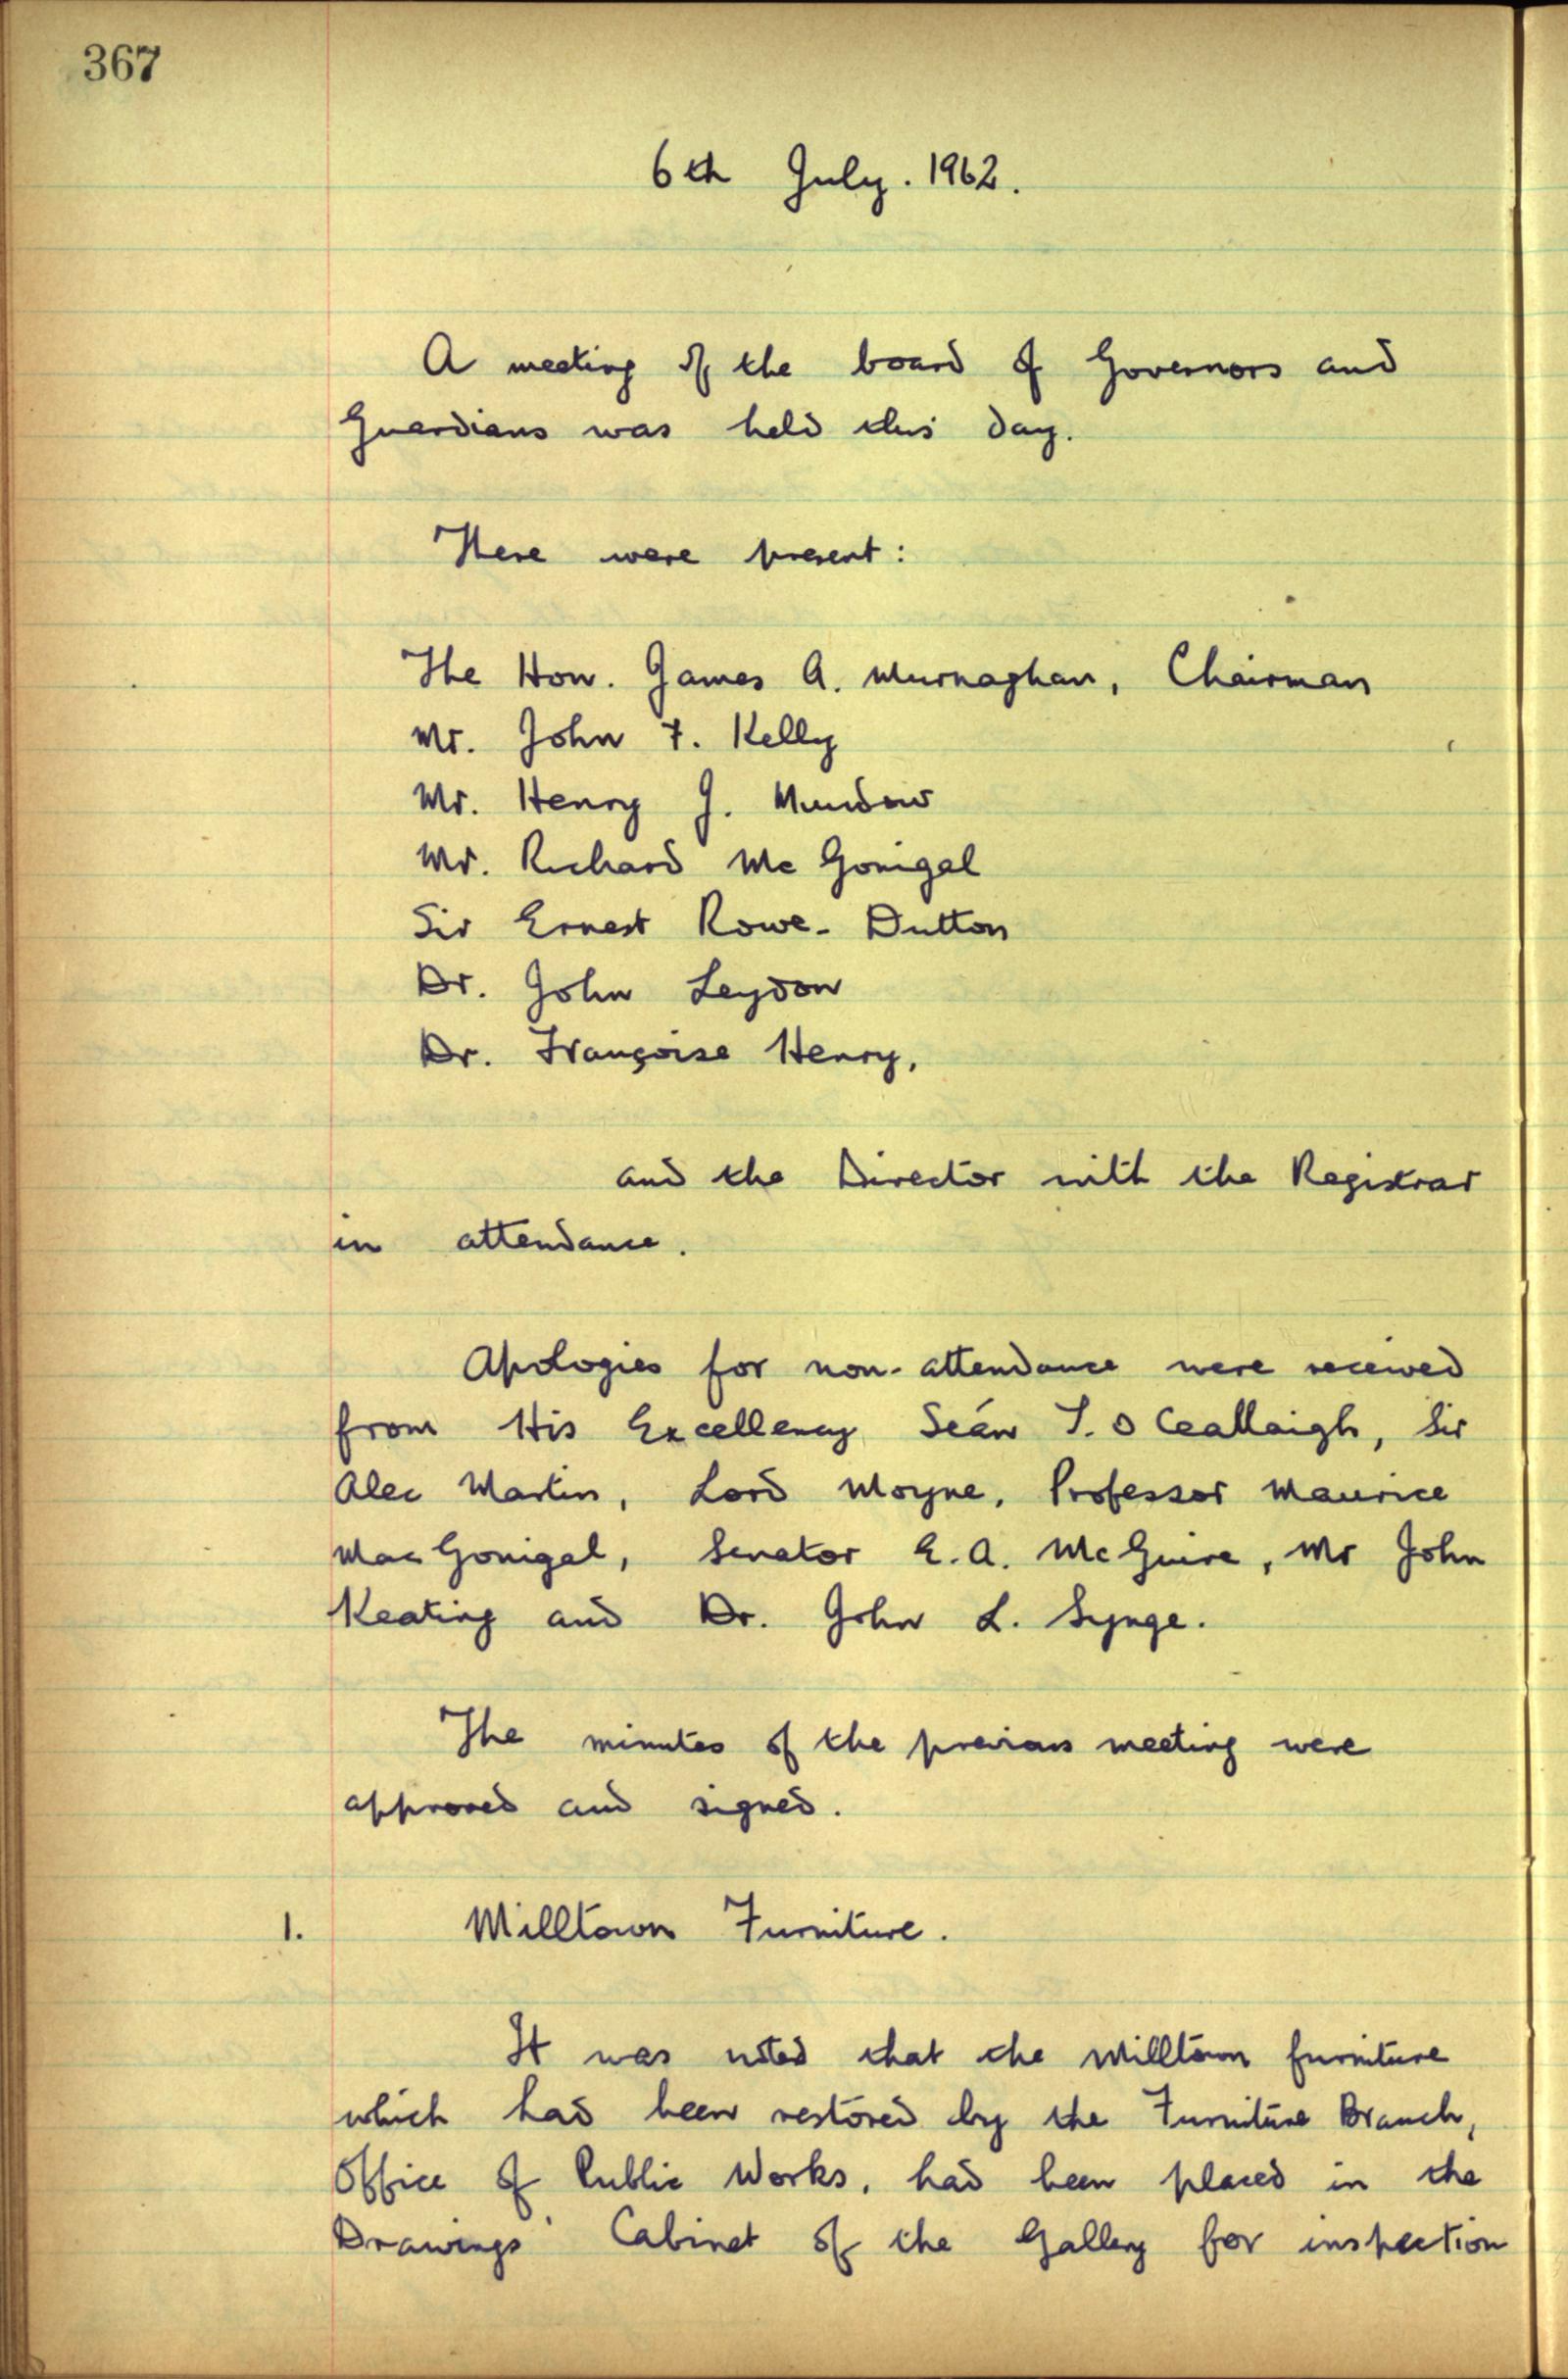 367
6th July. 1962.
A meeting of the board of Governors and
Guardians was held this day.
There were present:
The Hon. James A. Murnaghan, Chairman
Mr. John F. Kelly
Mr. Henry J. Mundow
Mr. Richard Mc Gonigal
Sir Ernest Rowe-Dutton
Dr. John Leydon
Dr. Françoise Henry,
and the Director with the Registrar
in attendance.
Apologies for non-attendance were received
from His Excellency Seán T. O Ceallaigh, Sir
Alec Martin, Lord Moyne, Professor Maurice
MacGonigal, Senator E.A. McGuire, Mr John
Keating and Dr. John L. Synge.
The minutes of the previous meeting were
approved and signed.
1. Milltown Furniture.
It was noted that the Milltown furniture
which had been restored by the Furniture Branch,
Office of Public Works, had been placed in the
Drawings' Cabinet of the Gallery for inspection